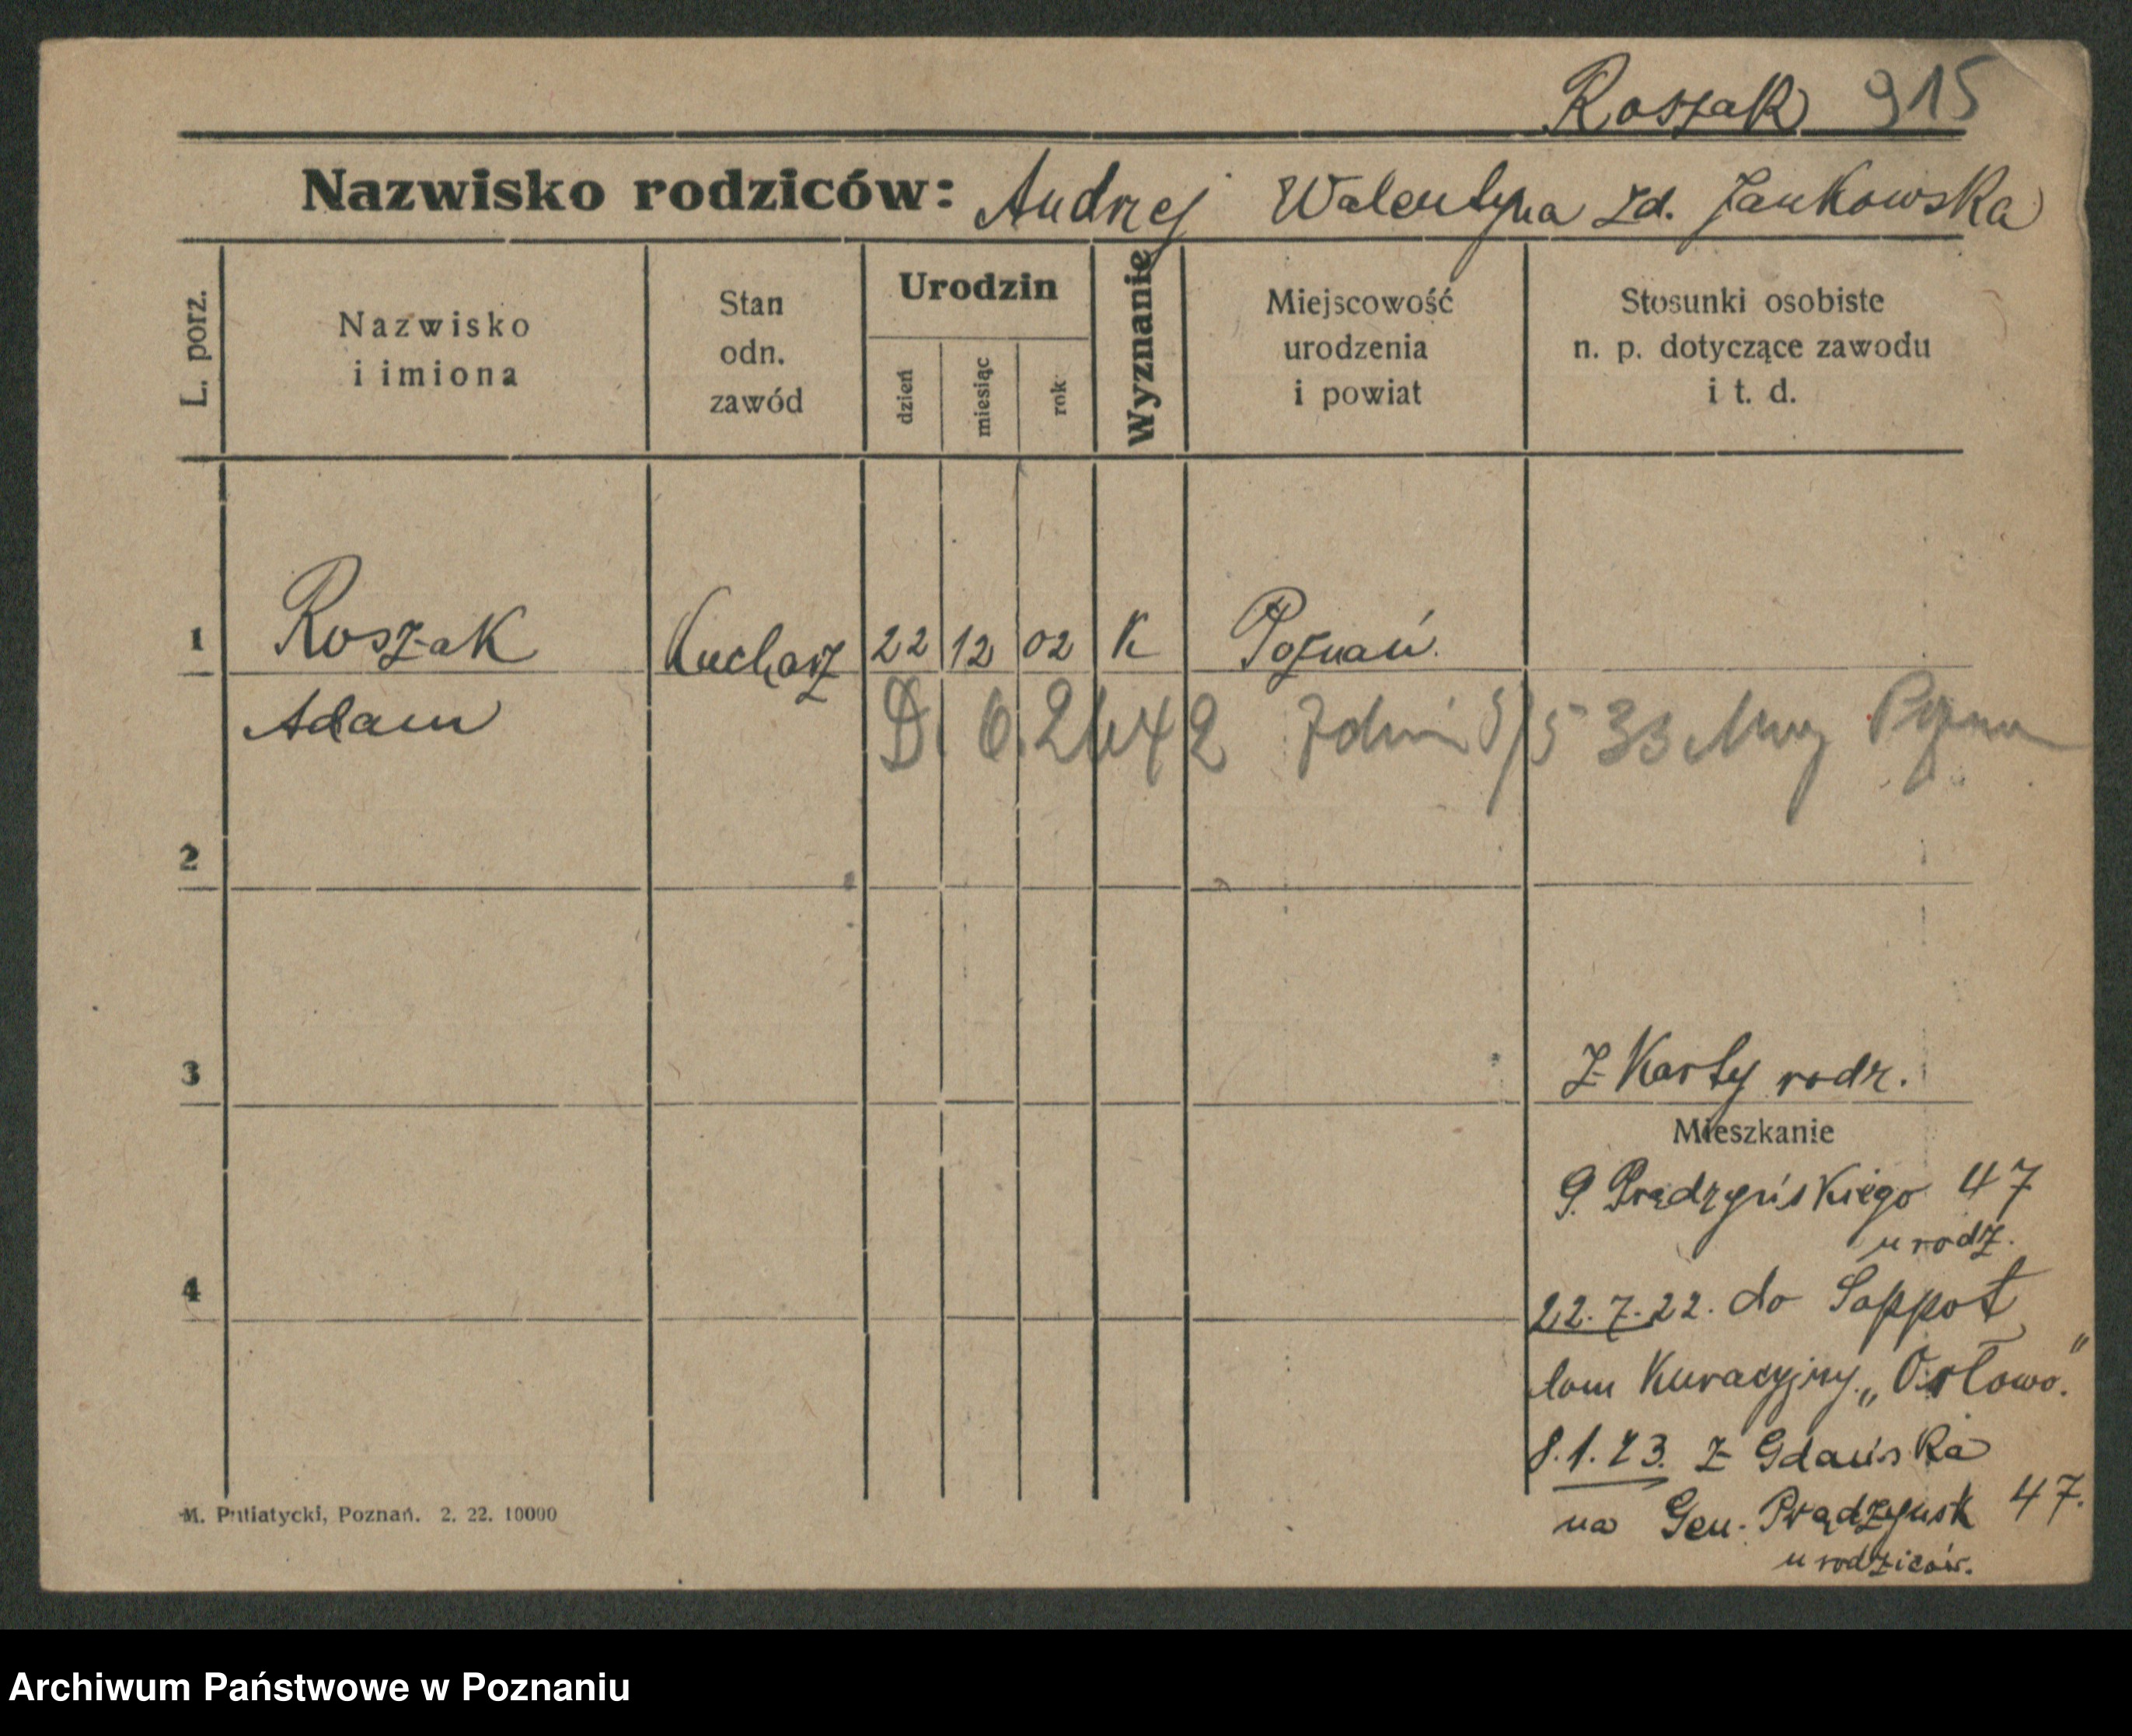 Roszak 915
Nazwisko rodziców: Andrzej Walentyna zd. Jankowska
L. porz.
Nazwisko
i imiona
Stan
odn.
zawód
Urodzin
dzień
miesiąc
rok
Wyznanie
Miejscowość
urodzenia
i powiat
Stosunki osobiste
n. p. dotyczące zawodu
i t. d.
1 Roszak Kucharz 22 12 02 K Poznań.
Adam
D. 6.2.42 33 Pozna
2
3
Z Karty rodz.
Mieszkanie
G. Prądzyńskiego 47
u rodz.
4
22.7.22. do Soppot
dom Kuracyjny „Orłowo."
8.1.23. z Gdańska
na Gen. Prądzyńsk 47.
u rodziców.
M. Putiatycki, Poznań. 2. 22. 10000
Archiwum Państwowe w Poznaniu